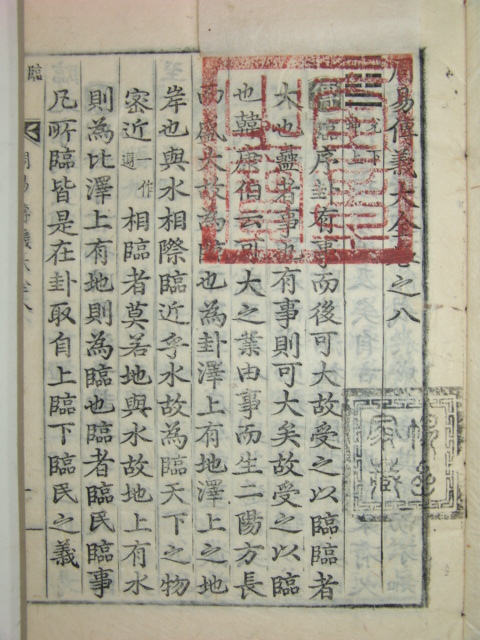 周易傳義大全卷之八
臨序卦有事而後可大故受之以臨臨者
大也蠱者事也有事則可大矣故受之以臨
也韓康伯云可大之業由事而生二陽方長
而盛大故為臨也為卦澤上有地澤上之地
岸也與水相際臨近乎水故為臨天下之物
密近一作邇相臨者莫若地與水故地上有水
則為比澤上有地則為臨也臨者臨民臨事
凡所臨皆是在卦取自上臨下臨民之義
臨